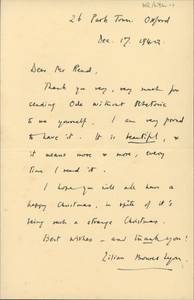 26 Park Town. Oxford
Dec. 17
Dear Mr Read.
Thank you very, very much for
sending Ode Without Rhetoric
to me yourself. I am very proud
to have it. It is beautiful, &
it means more & more, every
time I read it.
I hope you will all have a
happy Christmas, in spite of its
being such a strange Christmas.
Best wishes – and thank you!
Lilian Bowes Lyon.